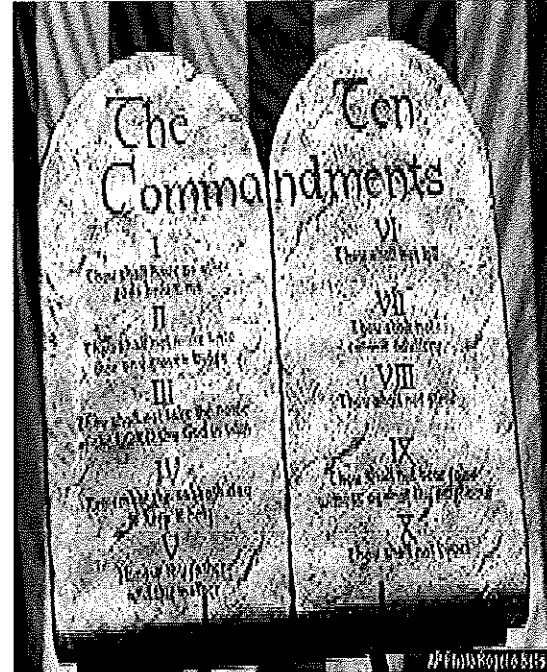 The Ten
Commandments
I
Thou shalt have no other
gods before me
II
Thou shall not make unto
thee any graven image
III
Thou shalt not take the name
of the LORD thy God in vain
IV
Remember the sabbath day
to keep it holy
V
Honour thy father
and thy mother
VI
Thou shalt not kill
VII
Thou shalt not
commit adultery
VIII
Thou shalt not steal
IX
Thou shalt not bear false
witness against thy
X
Thou shalt not covet
AP